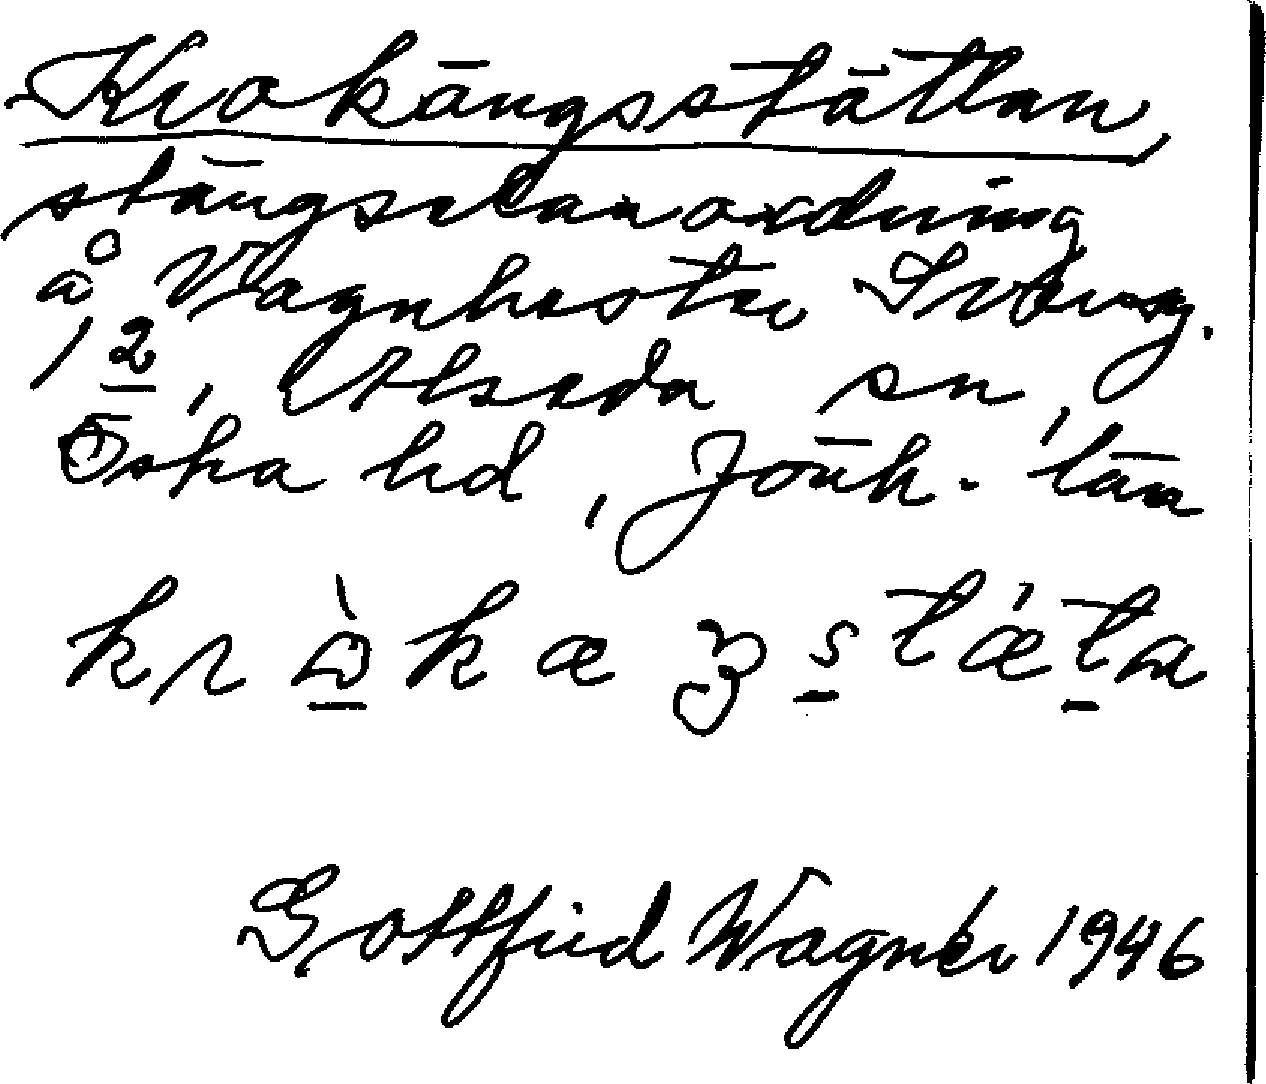 Krokängsstättan,
stängselanordning
å Vagnhester Sväng.
1 2, Alseda sn,
Östra hd, Jönk. län
kràkæŋstǽta
Gottfrid Wagnér 1946